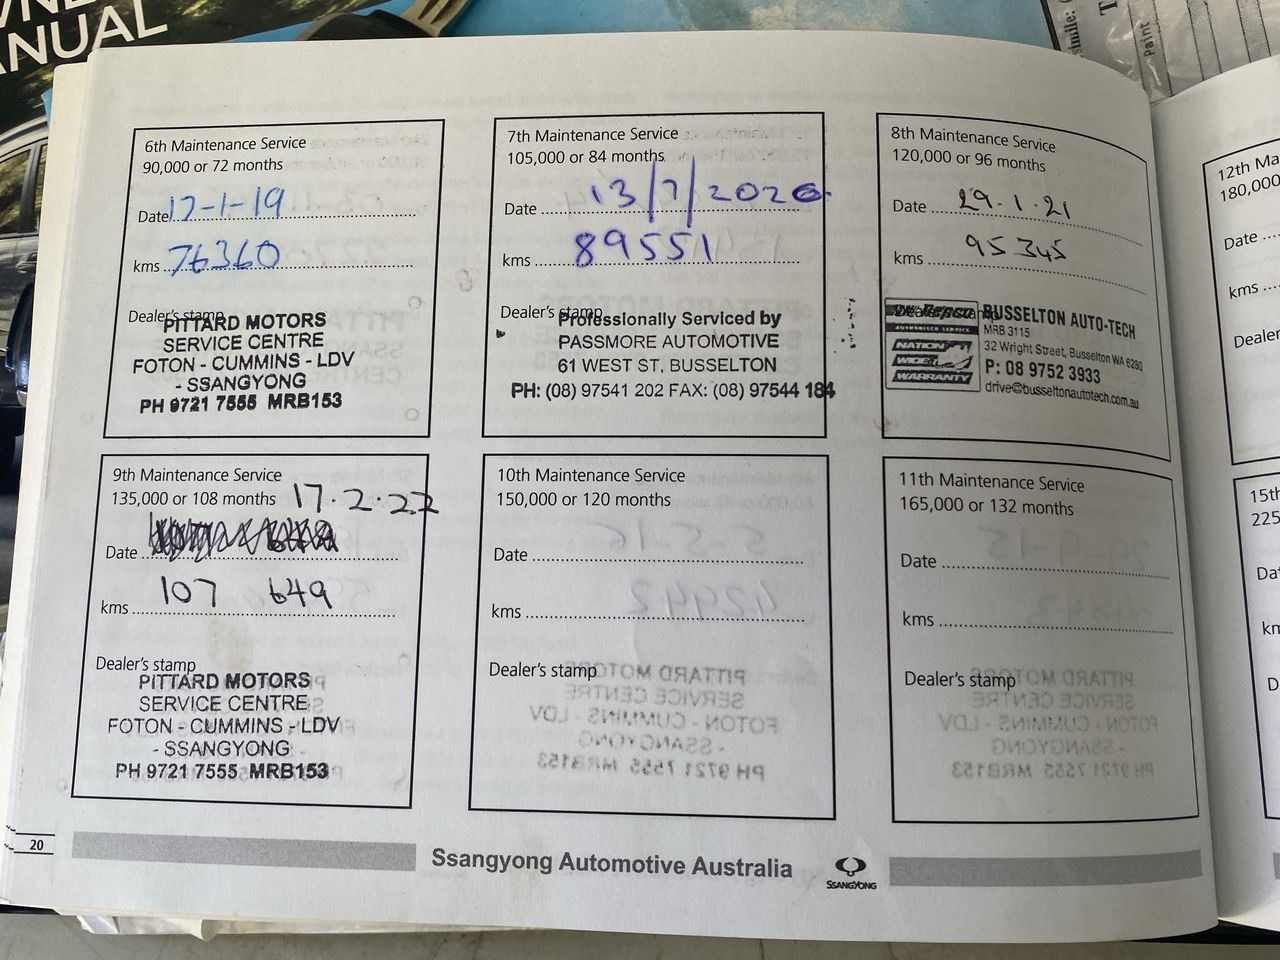 ANUAL
6th Maintenance Service
90,000 or 72 months
Date 17-1-19
kms 76360
Dealer's stamp
PITTARD MOTORS
SERVICE CENTRE
FOTON - CUMMINS - LDV
- SSANGYONG
PH 9721 7555 MRB153
7th Maintenance Service
105,000 or 84 months
Date 13/7/2020
kms 89551
Dealer's stamp
Professionally Serviced by
PASSMORE AUTOMOTIVE
61 WEST ST, BUSSELTON
PH: (08) 97541 202 FAX: (08) 97544 184
8th Maintenance Service
120,000 or 96 months
Date 29.1.21
kms 95345
BUSSELTON AUTO-TECH
MRB 3115
32 Wright Street, Busselton WA 6280
P: 08 9752 3933
drive@busseltonautotech.com.au
AUTHORISED SERVICE
NATION
WIDE
WARRANTY
9th Maintenance Service
135,000 or 108 months 17.2.22
Date
kms 107 649
Dealer's stamp
PITTARD MOTORS
SERVICE CENTRE
FOTON - CUMMINS - LDV
- SSANGYONG
PH 9721 7555 MRB153
10th Maintenance Service
150,000 or 120 months
Date
kms
Dealer's stamp
11th Maintenance Service
165,000 or 132 months
Date
kms
Dealer's stamp
12th Ma
180,000
Date
kms
Dealer
15th
225
20
Ssangyong Automotive Australia
SSANGYONG
Paint